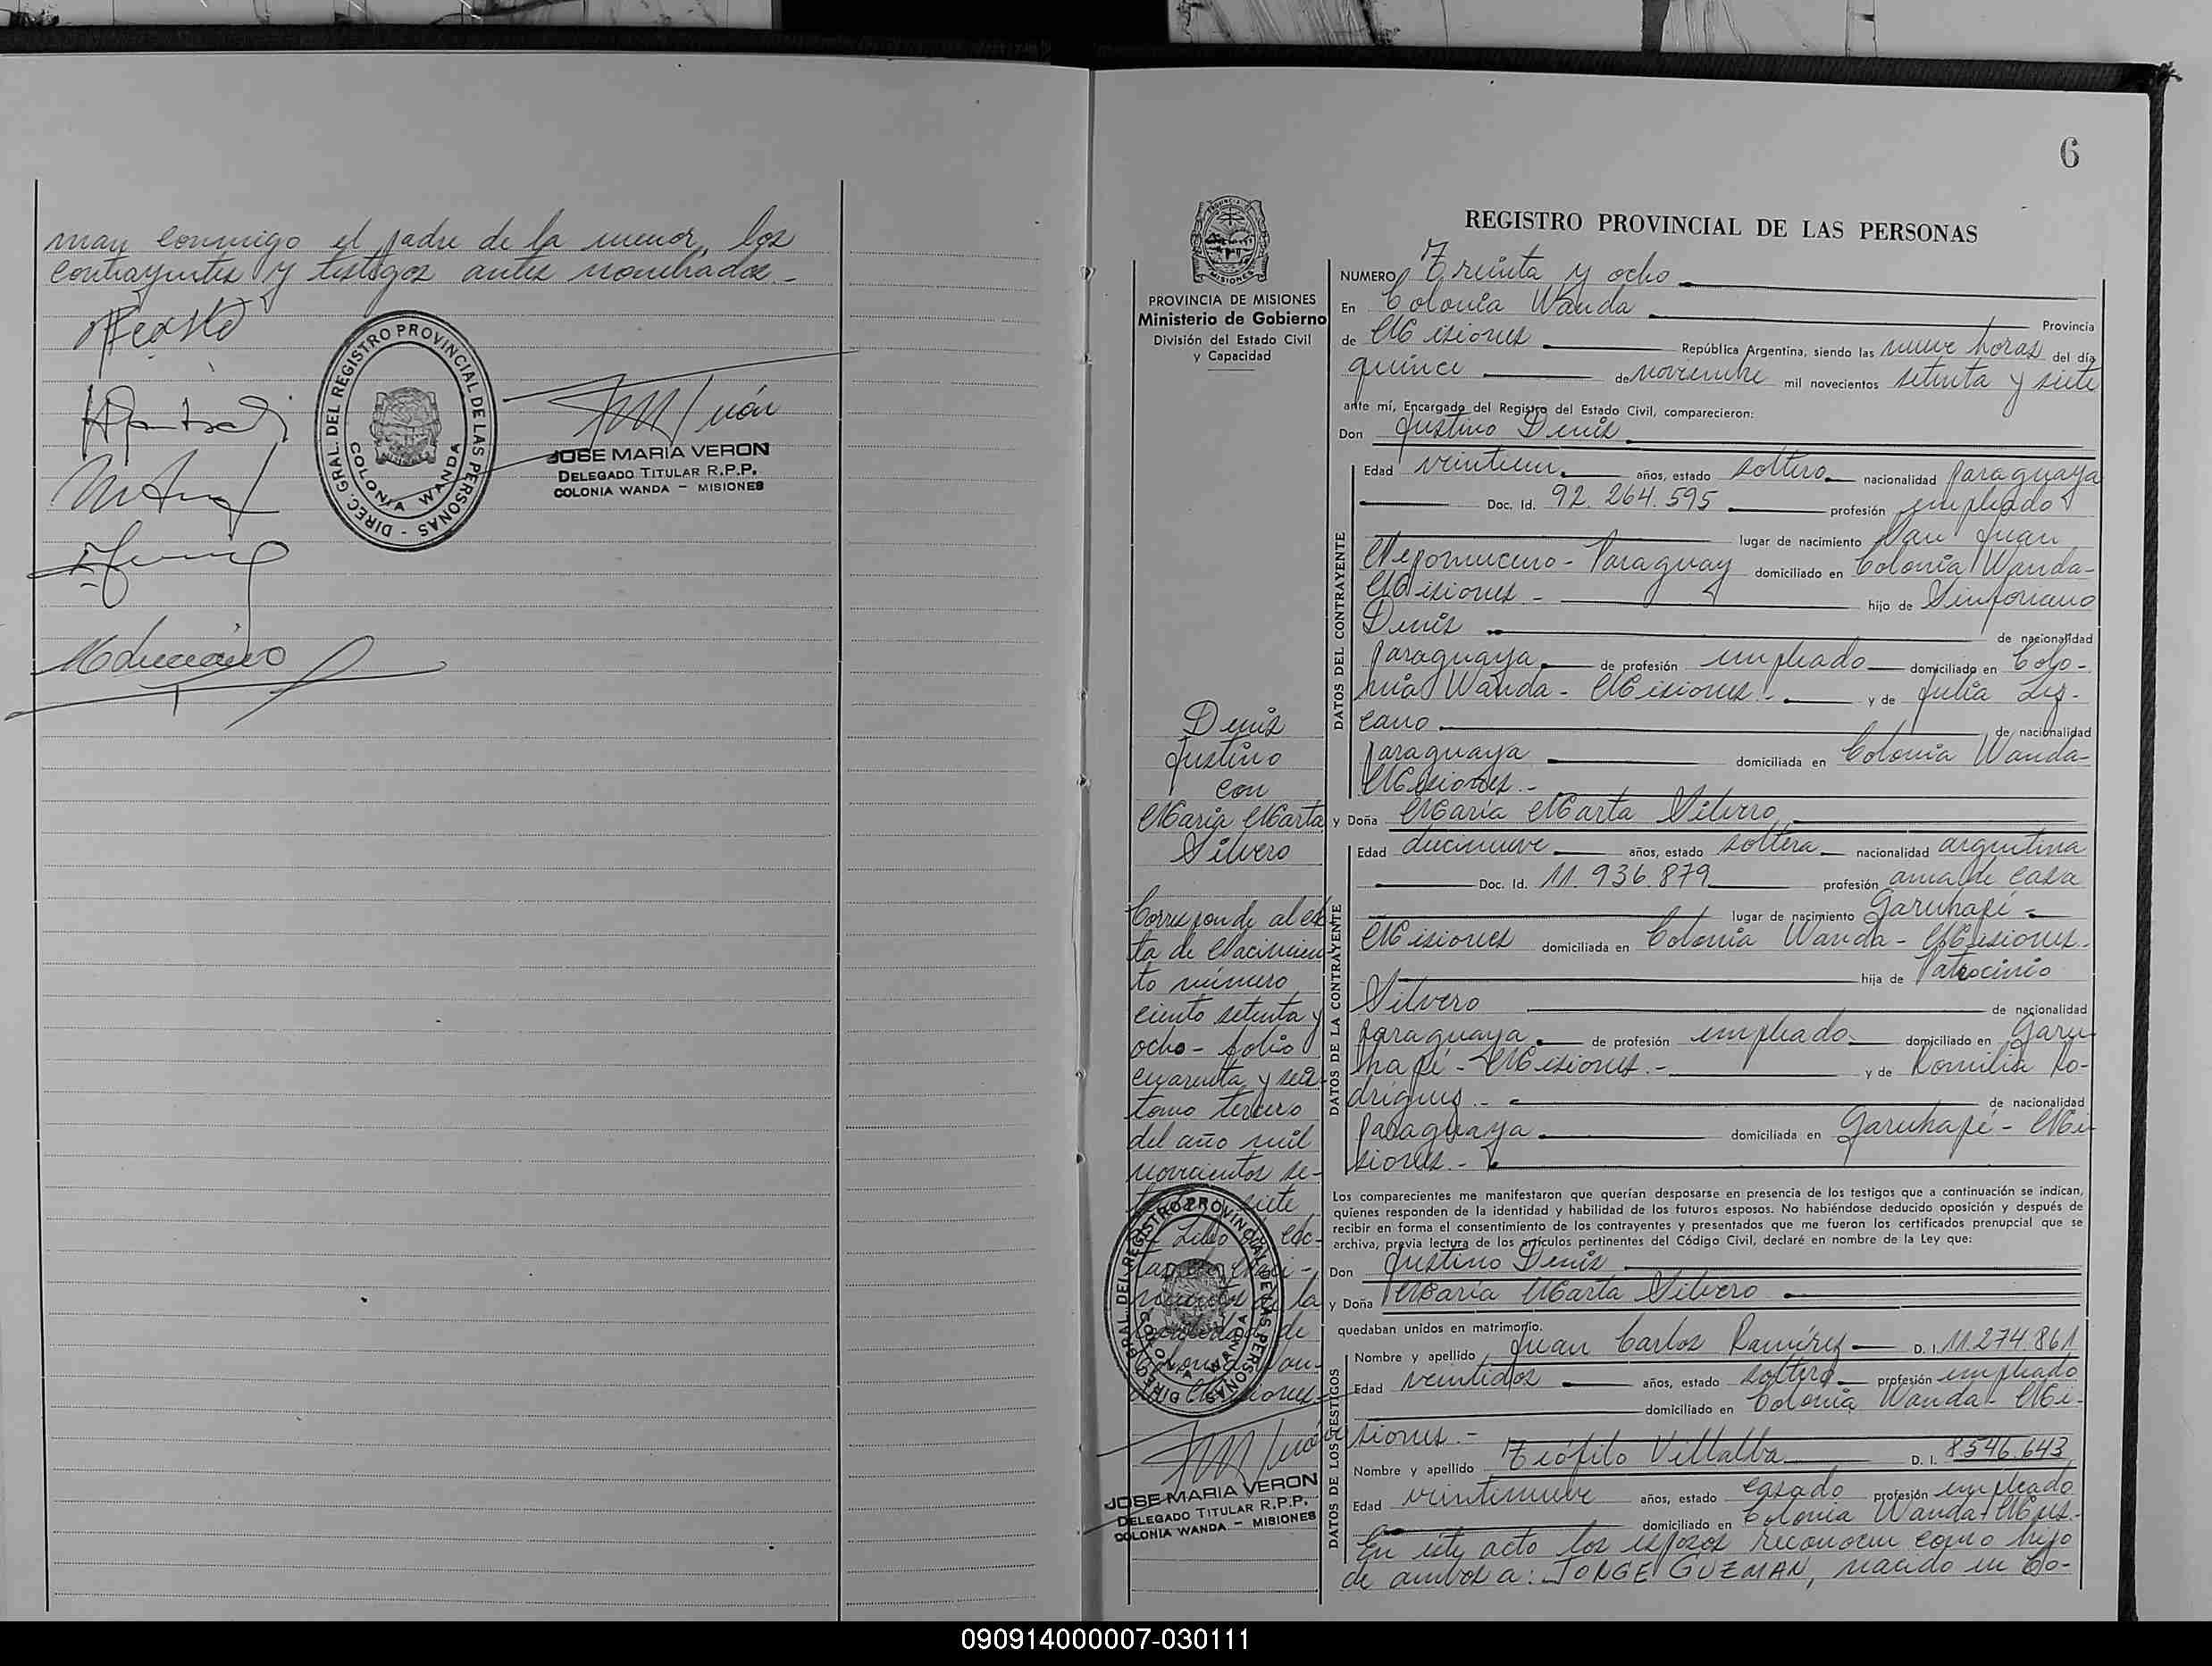 man conmigo el padre de la menor, los
contrayentes y testigos antes nombrados.-
DIREC. GRAL. DEL REGISTRO PROVINCIAL DE LAS PERSONAS -
COLONIA WANDA
JOSE MARIA VERON
DELEGADO TITULAR R.P.P.
COLONIA WANDA - MISIONES
6
PROVINCIA DE MISIONES
Ministerio de Gobierno
División del Estado Civil
y Capacidad
Denis
Justino
con
María Marta
Silvero
Corresponde al ac
ta de Nacimien-
to número
ciento setenta y
ocho - folio
cuarenta y seis
tomo tercero
del año mil
novecientos se-
siete
la
de
JOSE MARIA VERON
DELEGADO TITULAR R.P.P.
COLONIA WANDA - MISIONES
REGISTRO PROVINCIAL DE LAS PERSONAS
NUMERO Treinta y ocho
En Colonia Wanda Provincia
de Misiones República Argentina, siendo las nueve horas del día
quince de noviembre mil novecientos setenta y siete
ante mí, Encargado del Registro del Estado Civil, comparecieron:
Don Justino Denis
DATOS DEL CONTRAYENTE
Edad veintiun años, estado soltero nacionalidad paraguaya
Doc. Id. 92.264.595 profesión empleado
lugar de nacimiento San Juan
Nepomuceno - Paraguay domiciliado en Colonia Wanda-
Misiones - hijo de Sinforiano
Denis de nacionalidad
paraguaya de profesión empleado domiciliado en Colo-
nia Wanda - Misiones.- y de Julia Lez-
cano de nacionalidad
paraguaya domiciliada en Colonia Wanda-
Misiones.-
y Doña María Marta Silvero
DATOS DE LA CONTRAYENTE
Edad diecinueve años, estado soltera nacionalidad argentina
Doc. Id. 11.936.879 profesión ama de casa
lugar de nacimiento Garuhapé -
Misiones domiciliada en Colonia Wanda - Misiones.
hija de Patrocinio
Silvero de nacionalidad
paraguaya de profesión empleado domiciliado en Garu-
hapé - Misiones.- y de Romilia Ro-
dríguez.- de nacionalidad
paraguaya domiciliada en Garuhapé - Mi-
siones.-
Los comparecientes me manifestaron que querían desposarse en presencia de los testigos que a continuación se indican,
quienes responden de la identidad y habilidad de los futuros esposos. No habiéndose deducido oposición y después de
recibir en forma el consentimiento de los contrayentes y presentados que me fueron los certificados prenupcial que se
archiva, previa lectura de los artículos pertinentes del Código Civil, declaré en nombre de la Ley que:
Don Justino Denis
y Doña María Marta Silvero
quedaban unidos en matrimonio.
DATOS DE LOS TESTIGOS
Nombre y apellido Juan Carlos Ramírez D. I. 11.274.861
Edad veintidos años, estado soltero profesión empleado
domiciliado en Colonia Wanda - Mi-
siones.-
Nombre y apellido Teófilo Villalba D. I. 8546.643
Edad veintinueve años, estado casado profesión empleado
domiciliado en Colonia Wanda - Mis.
En este acto los esposos reconocen como hijo
de ambos a: JORGE GUZMAN, nacido en Co-
090914000007-030111